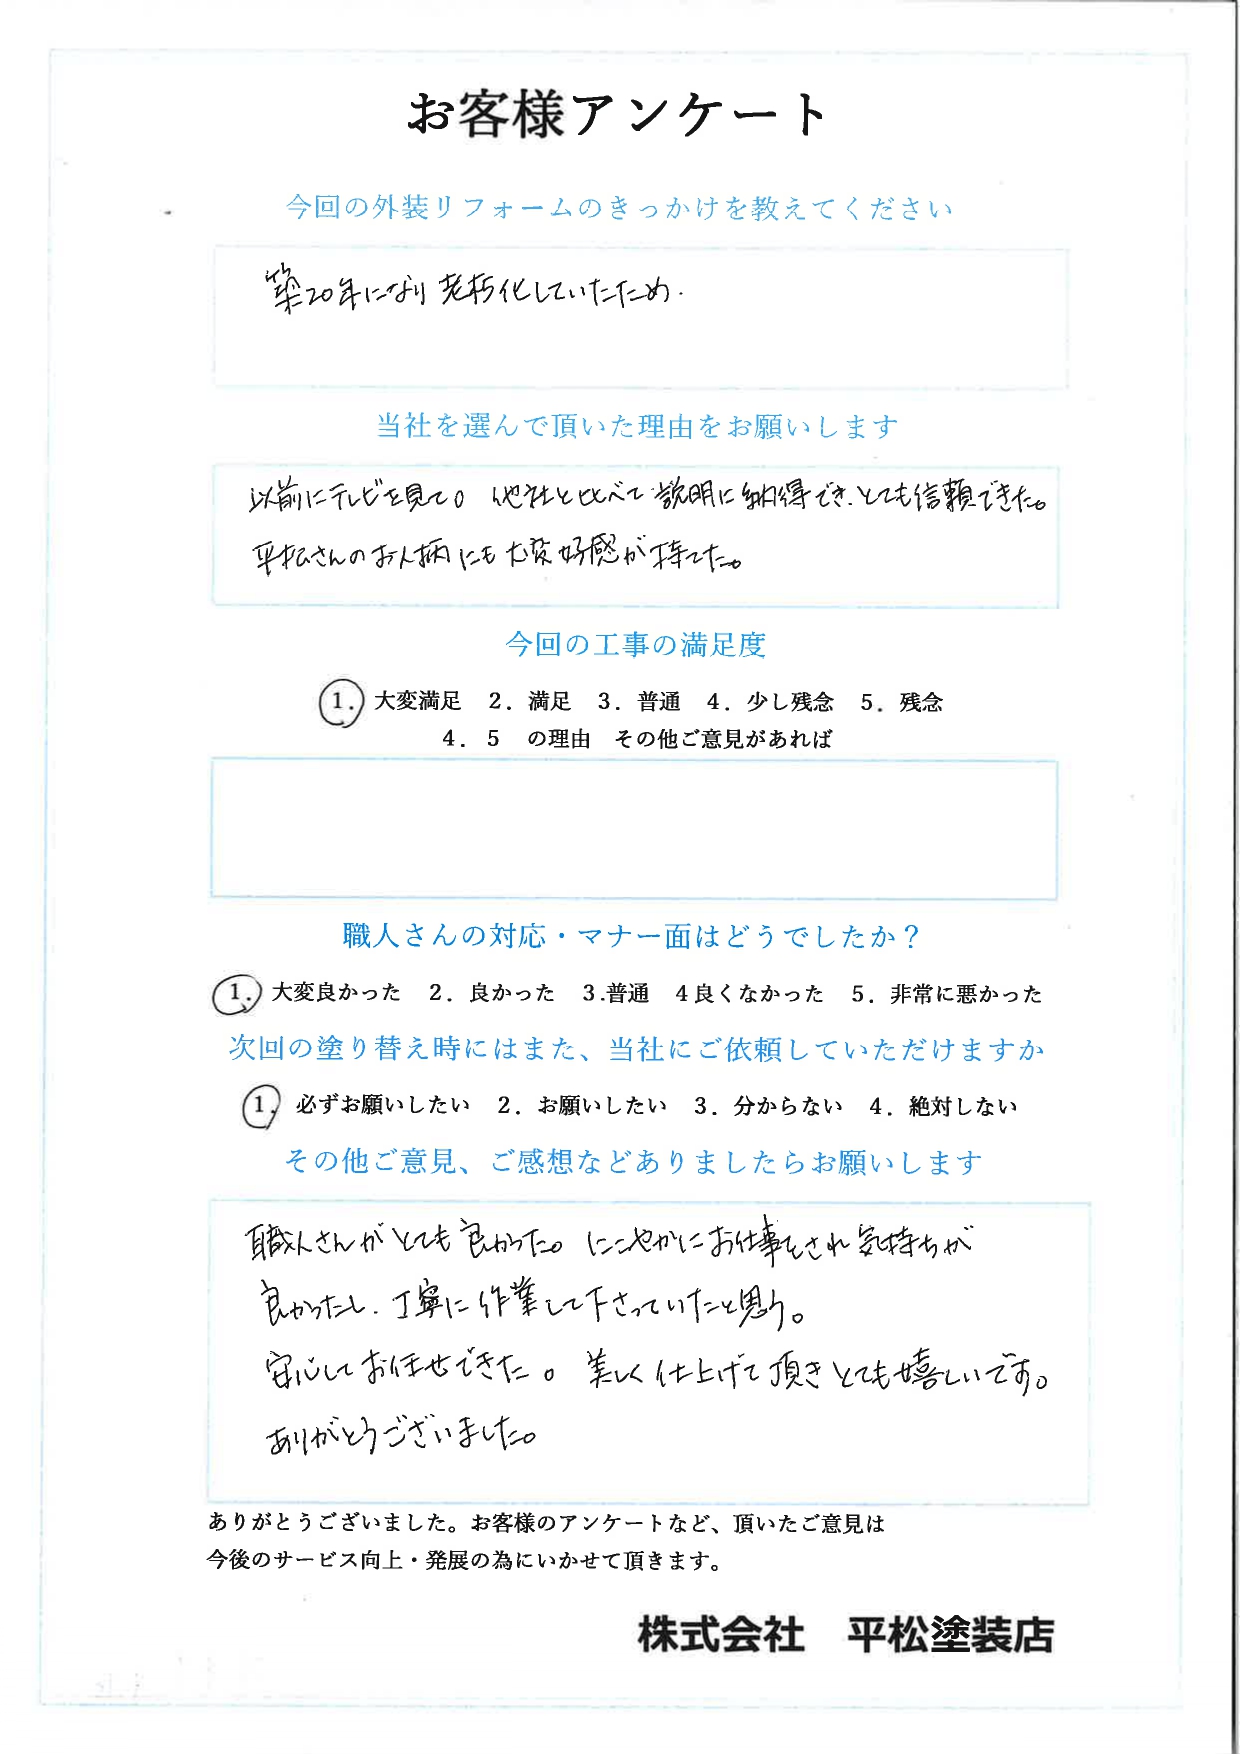 お客様アンケート
今回の外装リフォームのきっかけを教えてください
築20年になり老朽化していたため.
当社を選んで頂いた理由をお願いします
以前にテレビを見て。他社と比べて説明に納得でき、とても信頼できた。
平松さんのお人柄にも大変好感が持てた。
今回の工事の満足度
1. 大変満足 2. 満足 3. 普通 4. 少し残念 5. 残念
4. 5 の理由 その他ご意見があれば
職人さんの対応・マナー面はどうでしたか？
1. 大変良かった 2. 良かった 3.普通 4良くなかった 5. 非常に悪かった
次回の塗り替え時にはまた、当社にご依頼していただけますか
1. 必ずお願いしたい 2. お願いしたい 3. 分からない 4. 絶対しない
その他ご意見、ご感想などありましたらお願いします
職人さんがとても良かった。にこやかにお仕事をされ気持ちが
良かったし、丁寧に作業して下さっていたと思う。
安心してお任せできた。美しく仕上げて頂きとても嬉しいです。
ありがとうございました。
ありがとうございました。お客様のアンケートなど、頂いたご意見は
今後のサービス向上・発展の為にいかせて頂きます。
株式会社 平松塗装店